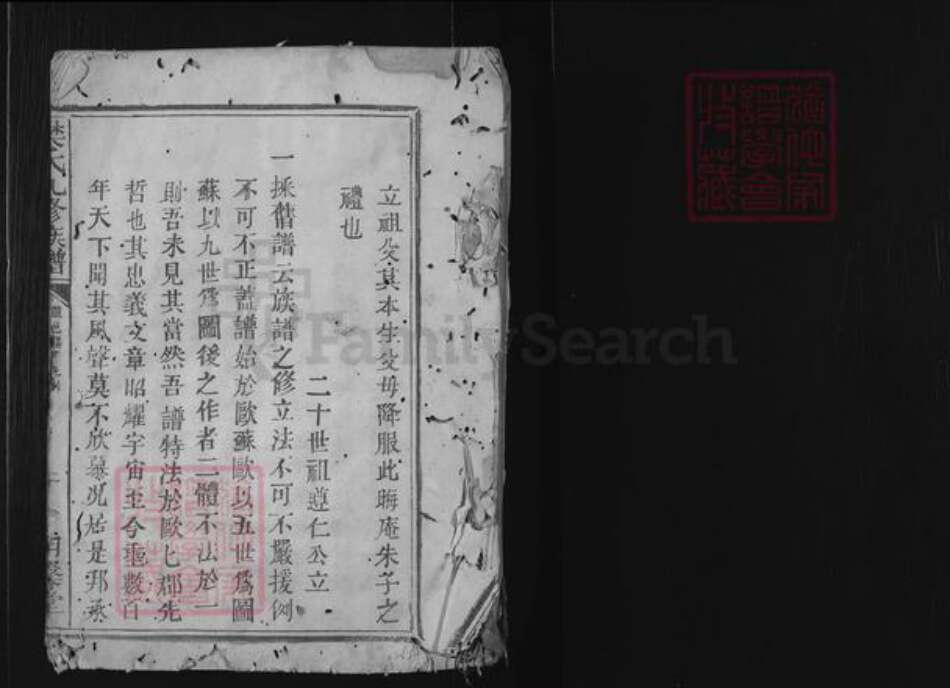 立祖父其本生父母降服此晦庵朱子之
禮也
二十世祖遵仁公立
一 採舊譜云族譜之修立法不可不嚴援例
不可不正蓋譜始於歐蘇歐以五世爲圖
蘇以九世爲圖後之作者二體不法於一
則吾未見其當然吾譜特法於歐七郡先
哲也其忠義文章昭耀宇宙至今垂數百
年天下聞其風聲莫不欣慕况居是邦承
氏九修族譜
FamilySearch